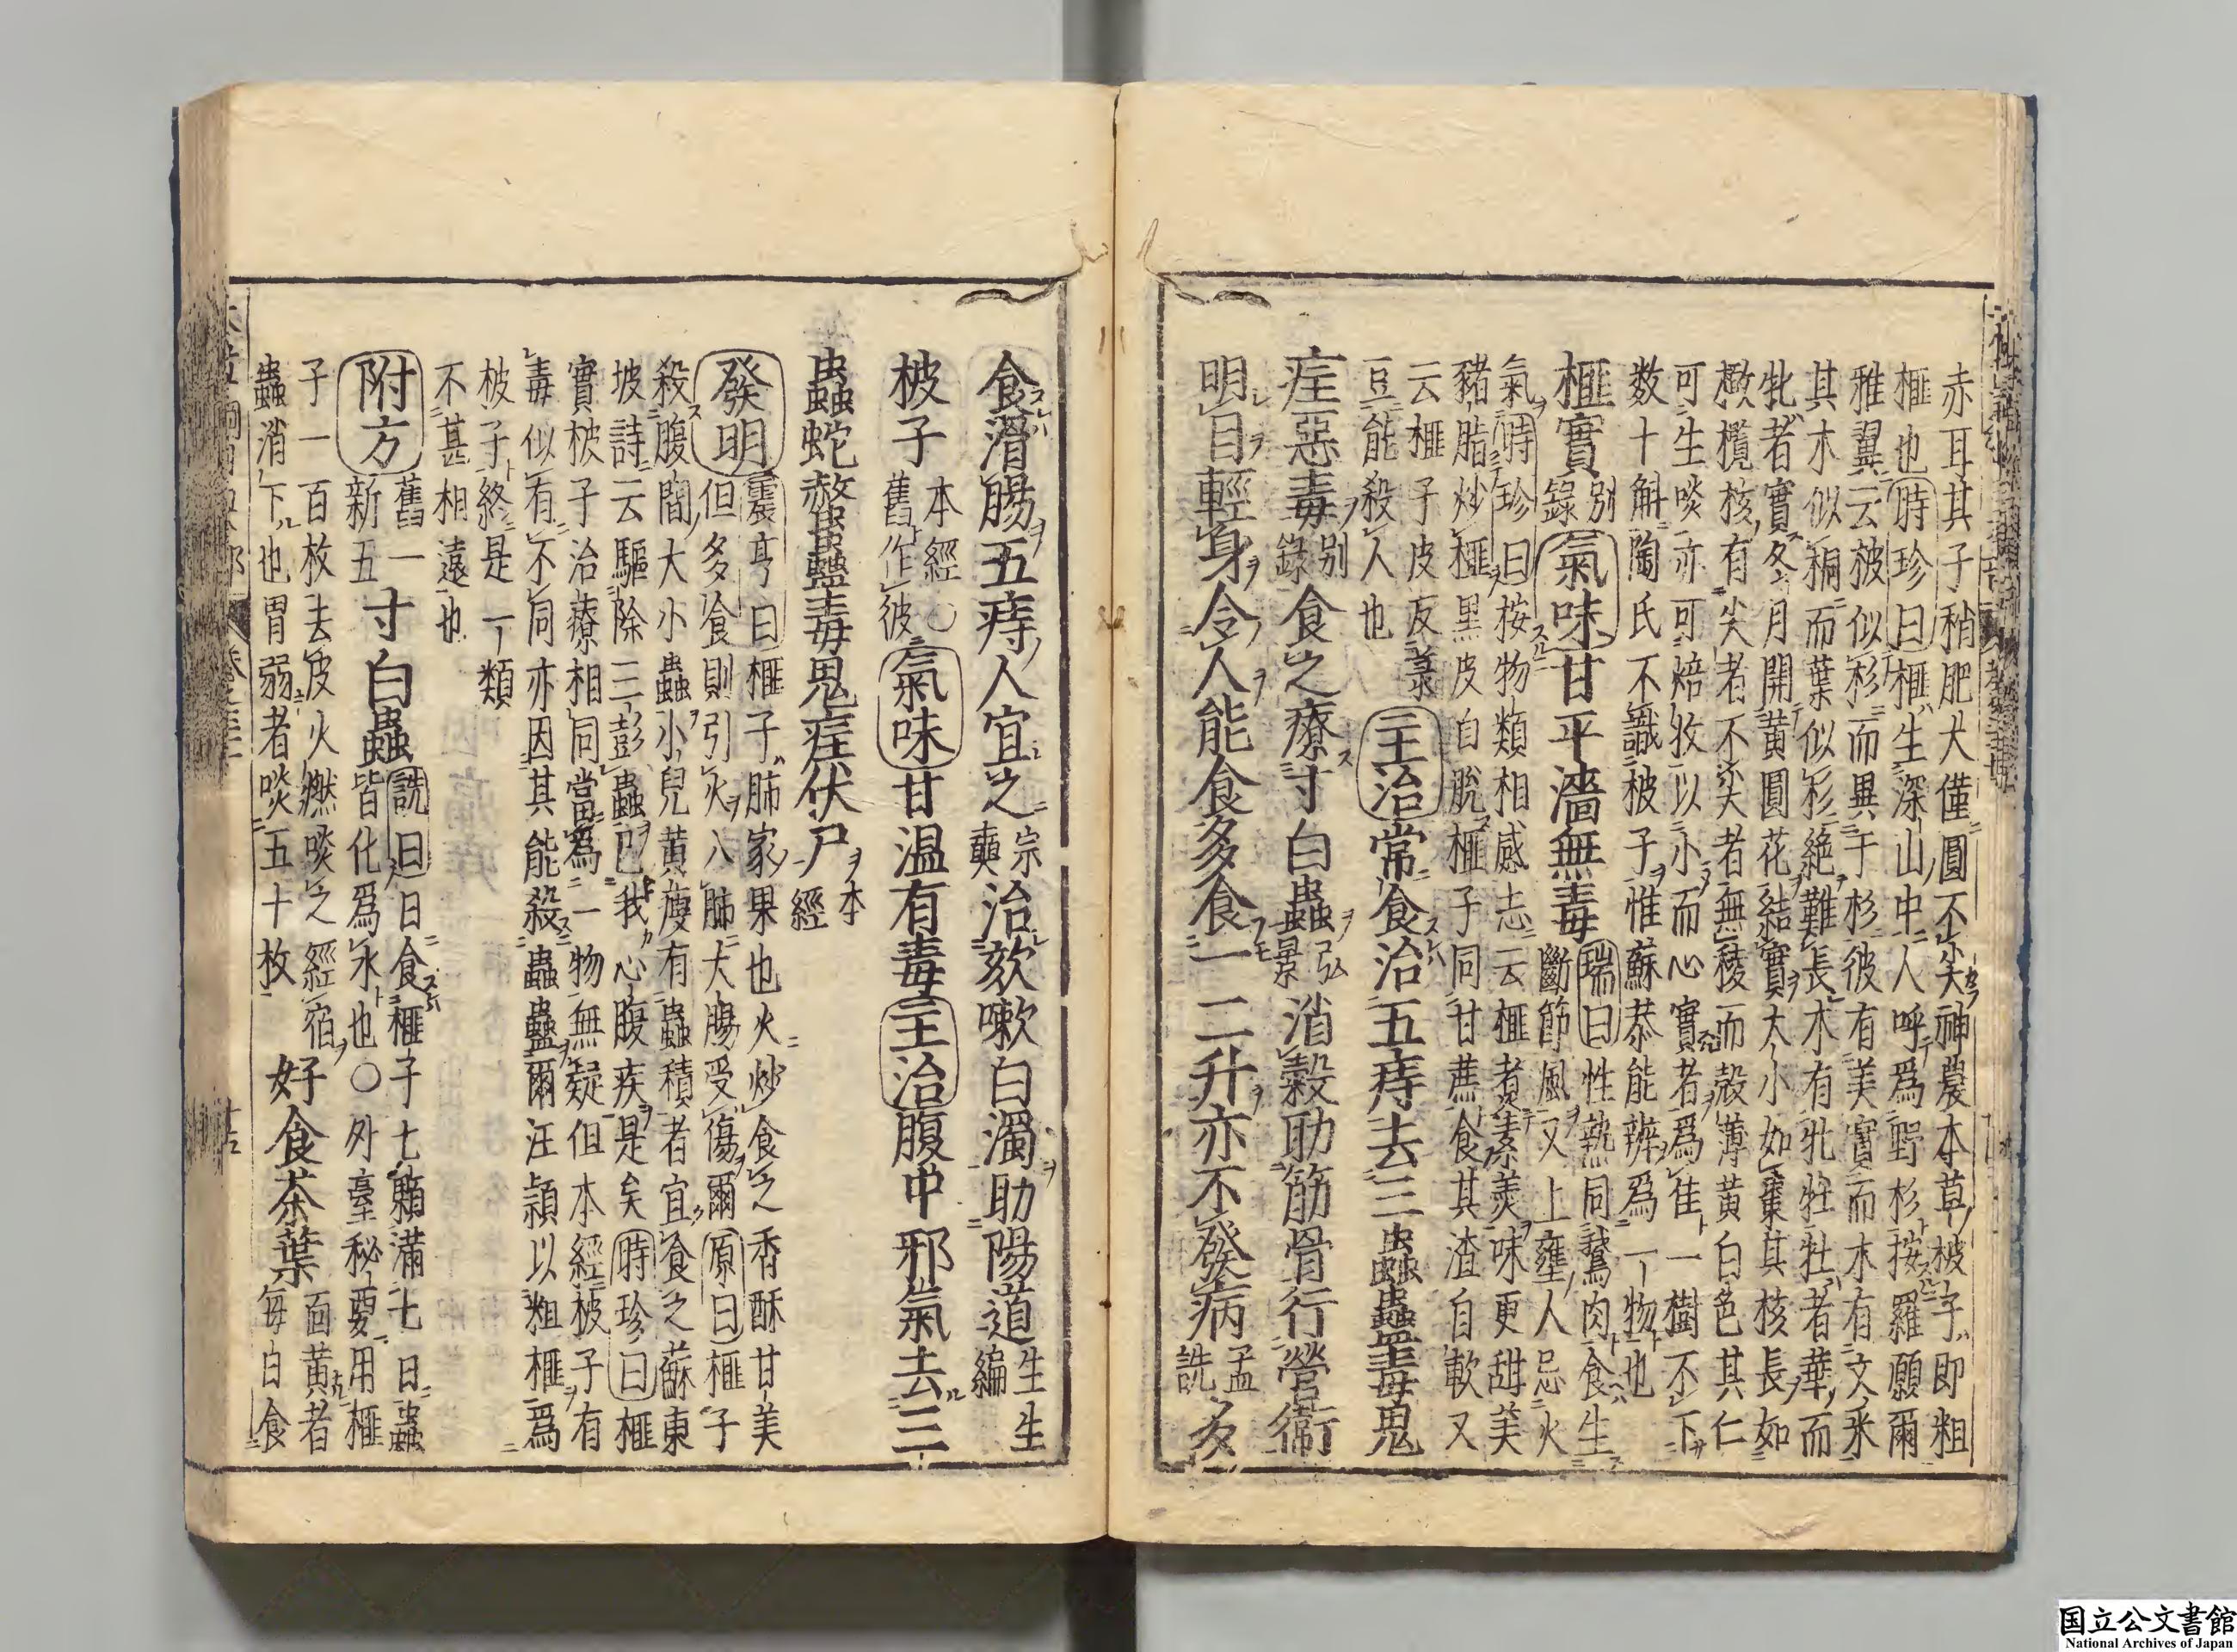 赤耳其子稍肥大僅圓不尖神農本草柀子即粗
榧也時珍曰榧生深山中人呼爲野杉按羅願爾
雅翼云柀似杉而異于杉彼有美實而木有文采
其木似桐而葉似杉絶難長木有牝牡牡者華而
牝者實冬月開黄圓花結實大小如棗其核長如
橄欖核有尖者不尖者無稜而殻薄黄白色其仁
可生啖亦可焙收以小而心實者爲佳一樹不下
数十斛陶氏不識柀子惟蘇恭能辨爲一物也
榧實別錄氣味甘平濇無毒瑞曰性熱同鵞肉食生
斷節風又上壅人忌火
氣時珍曰按物類相感志云榧煮素羹味更甜美
豬脂炒榧黒皮自脫榧子同甘蔗食其渣自軟又
云榧子皮反菉
豆能殺人也主治常食治五痔去三蟲蠱毒鬼
疰惡毒別錄食之療寸白蟲弘景消穀助筋骨行營衞
明目輕身令人能食多食一二升亦不發病孟詵多
食滑腸五痔人宜之宗奭治欬嗽白濁助陽道生生編
柀子本經○舊作彼氣味甘温有毒主治腹中邪氣去三
蟲蛇螫蠱毒鬼疰伏尸本經
發明震亨曰榧子肺家果也火炒食之香酥甘美
但多食則引火入肺大腸受傷爾原曰榧子
殺腹間大小蟲小兒黄瘦有蟲積者宜食之蘇東
坡詩云驅除三彭蟲已我心腹疾是矣時珍曰榧
實柀子治療相同當爲一物無疑但本經柀子有
毒似有不同亦因其能殺蟲蠱爾汪頴以粗榧爲
柀子終是一類
不甚相遠也
附方舊一新五寸白蟲詵曰日食榧子七顆滿七日蟲
皆化爲水也○外臺秘要用榧
子一百枚去皮火燃啖之經宿
蟲消下也胃弱者啖五十枚好食茶葉面黄者
毎日食
国立公文書館
National Archives of Japan